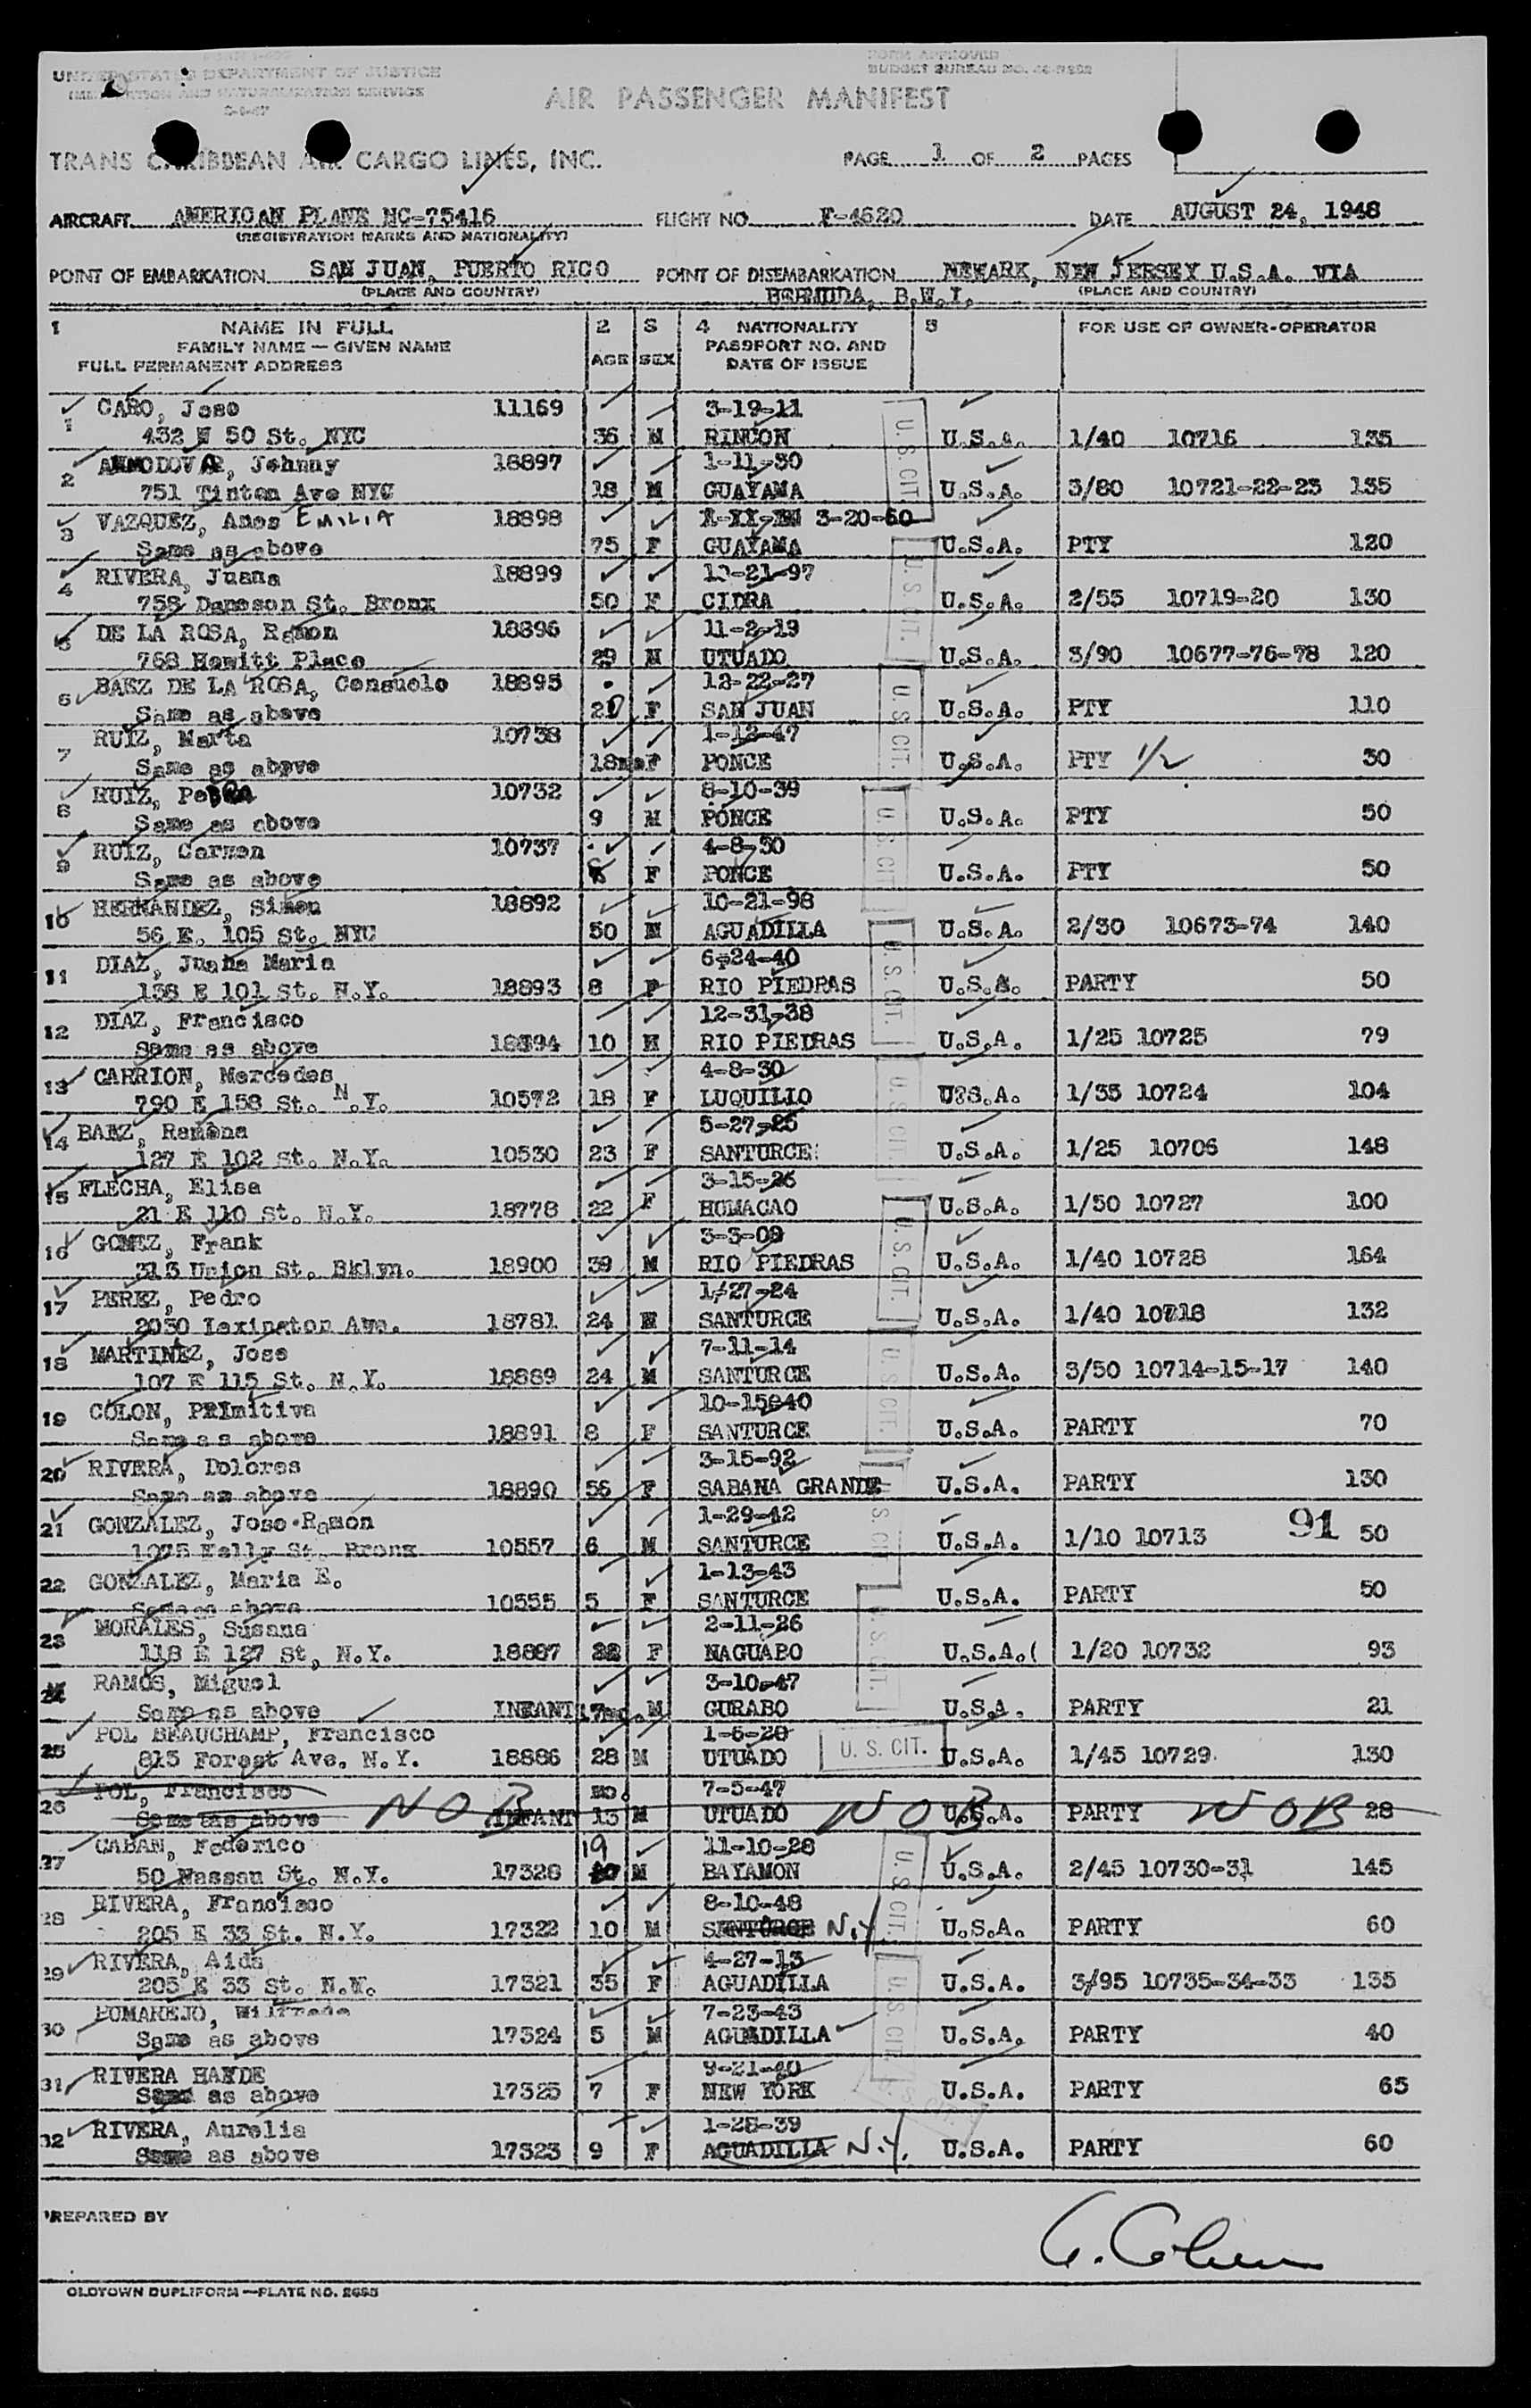 UNITED STATES DEPARTMENT OF JUSTICE
IMMIGRATION AND NATURALIZATION SERVICE
FORM APPROVED
BUDGET BUREAU NO.
AIR PASSENGER MANIFEST
TRANS CARIBBEAN AIR CARGO LINES, INC.
PAGE 1 OF 2 PAGES
AIRCRAFT AMERICAN PLANE NC-75416 FLIGHT NO F-4620 DATE AUGUST 24, 1948
(REGISTRATION MARKS AND NATIONALITY)
POINT OF EMBARKATION SAN JUAN, PUERTO RICO POINT OF DISEMBARKATION NEWARK, NEW JERSEY U.S.A. VIA
(PLACE AND COUNTRY) BERMUDA, B.W.I. (PLACE AND COUNTRY)
1 NAME IN FULL 2 3 4 NATIONALITY 5 FOR USE OF OWNER-OPERATOR
FAMILY NAME — GIVEN NAME AGE SEX PASSPORT NO. AND
FULL PERMANENT ADDRESS DATE OF ISSUE
1 CARO, Jose 11169 3-19-11
432 W 50 St. NYC 36 M RINCON U.S.A. 1/40 10716 135
2 ALMODOVAR, Johnny 18897 1-11-30
751 Tinton Ave NYC 18 M GUAYAMA U.S.A. 3/80 10721-22-23 135
3 VAZQUEZ, EMILIA 18898 3-20-60
Same as above 75 F GUAYAMA U.S.A. PTY 120
4 RIVERA, Juana 18899 10-21-97
758 Daweson St. Bronx 50 F CIDRA U.S.A. 2/55 10719-20 130
5 DE LA ROSA, Ramon 18896 11-2-19
768 Hewitt Place 29 M UTUADO U.S.A. 3/90 10677-76-78 120
6 BAEZ DE LA ROSA, Consuelo 18895 12-22-27
Same as above 20 F SAN JUAN U.S.A. PTY 110
7 RUIZ, Marta 10738 1-12-47
Same as above 18mo F PONCE U.S.A. PTY 1/2 30
8 RUIZ, PeDRO 10732 8-10-39
Same as above 9 M PONCE U.S.A. PTY 50
9 RUIZ, Carmen 10737 4-8-30
Same as above F PONCE U.S.A. PTY 50
10 HERNANDEZ, Simon 18892 10-21-98
56 E. 105 St. NYC 50 M AGUADILLA U.S.A. 2/30 10673-74 140
11 DIAZ, Juana Maria 6-24-40
138 E 101 St. N.Y. 18893 8 F RIO PIEDRAS U.S.A. PARTY 50
12 DIAZ, Francisco 12-31-38
Same as above 18894 10 M RIO PIEDRAS U.S.A. 1/25 10725 79
13 CARRION, Mercedes 4-8-30
790 E 158 St. N.Y. 10572 18 F LUQUILLO U.S.A. 1/35 10724 104
14 BAEZ, Ramona 5-27-25
127 E 102 St. N.Y. 10530 23 F SANTURCE U.S.A. 1/25 10706 148
15 FLECHA, Elisa 3-15-26
21 E 110 St. N.Y. 18778 22 F HUMACAO U.S.A. 1/50 10727 100
16 GOMEZ, Frank 3-3-09
313 Union St. Bklyn. 18900 39 M RIO PIEDRAS U.S.A. 1/40 10728 164
17 PEREZ, Pedro 1-27-24
2030 Lexington Ave. 18781 24 M SANTURCE U.S.A. 1/40 10718 132
18 MARTINEZ, Jose 7-11-14
107 E 115 St. N.Y. 18889 24 M SANTURCE U.S.A. 3/50 10714-15-17 140
19 COLON, PRImitiva 10-15-40
Same as above 18891 8 F SANTURCE U.S.A. PARTY 70
20 RIVERA, Dolores 3-15-92
Same as above 18890 56 F SABANA GRANDE U.S.A. PARTY 130
21 GONZALEZ, Jose Ramon 1-29-42
1075 Kelly St. Bronx 10557 6 M SANTURCE U.S.A. 1/10 10713 91 50
22 GONZALEZ, Maria E. 1-13-43
Same as above 10555 5 F SANTURCE U.S.A. PARTY 50
23 MORALES, Susana 2-11-26
118 E 127 St, N.Y. 18887 22 F NAGUABO U.S.A. 1/20 10732 93
24 RAMOS, Miguel 3-10-47
Same as above INFANT 17mo. M GURABO U.S.A. PARTY 21
25 POL BEAUCHAMP, Francisco 1-6-20
815 Forest Ave. N.Y. 18886 28 M UTUADO U.S.A. 1/45 10729 130
26 POL, Francisco mo. 7-5-47
Same as above NOB INFANT 13 M UTUADO NOB U.S.A. PARTY NOB 28
27 CABAN, Federico 19 11-10-28
50 Nassau St. N.Y. 17328 M BAYAMON U.S.A. 2/45 10730-31 145
28 RIVERA, Francisco 8-10-48
205 E 33 St. N.Y. 17322 10 M SANTURCE N.Y. U.S.A. PARTY 60
29 RIVERA, Aida 4-27-13
205 E 33 St. N.Y. 17321 35 F AGUADILLA U.S.A. 3/95 10735-34-33 135
30 POMAREJO, Wilfredo 7-23-43
Same as above 17324 5 M AGUADILLA U.S.A. PARTY 40
31 RIVERA HAYDE 9-21-40
Same as above 17325 7 F NEW YORK U.S.A. PARTY 65
32 RIVERA, Aurelia 1-28-39
Same as above 17323 9 F AGUADILLA N.Y. U.S.A. PARTY 60
U. S. CIT.
PREPARED BY
G. Cohen
OLDTOWN DUPLIFORM—PLATE NO. 2693